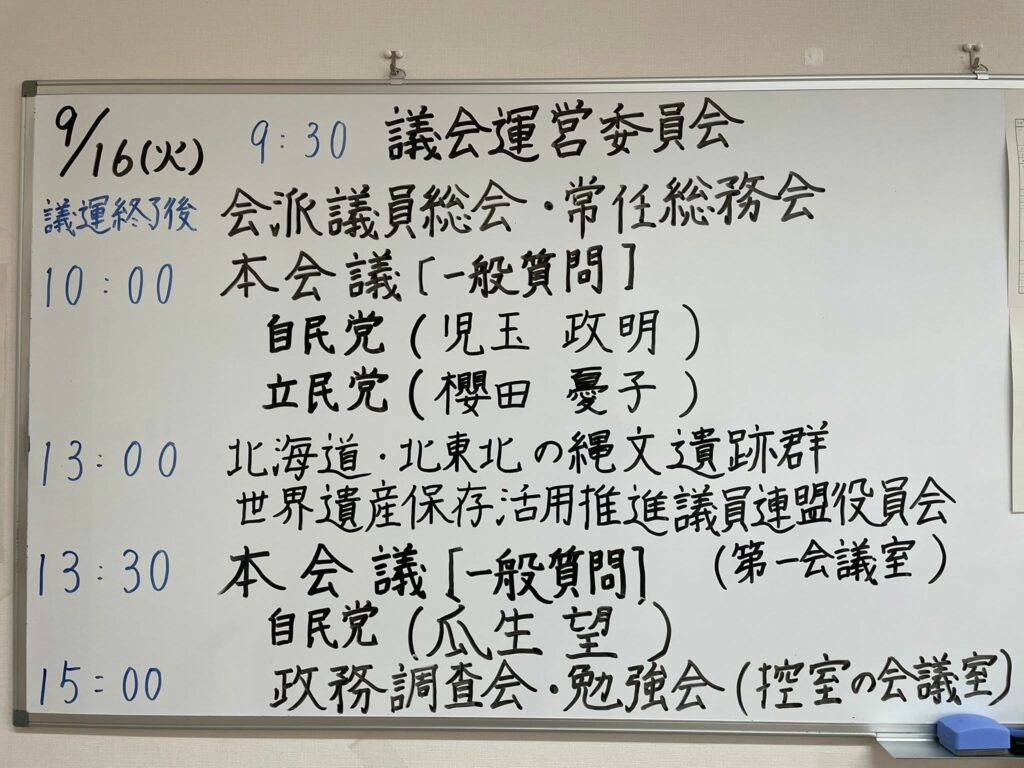 9/16(火) 9:30 議会運営委員会
議運終了後 会派議員総会・常任総務会
10:00 本会議[一般質問]
自民党(児玉 政明)
立民党(櫻田 憂子)
13:00 北海道・北東北の縄文遺跡群
世界遺産保存活用推進議員連盟役員会
(第一会議室)
13:30 本会議[一般質問]
自民党(瓜生 望)
15:00 政務調査会・勉強会(控室の会議室)